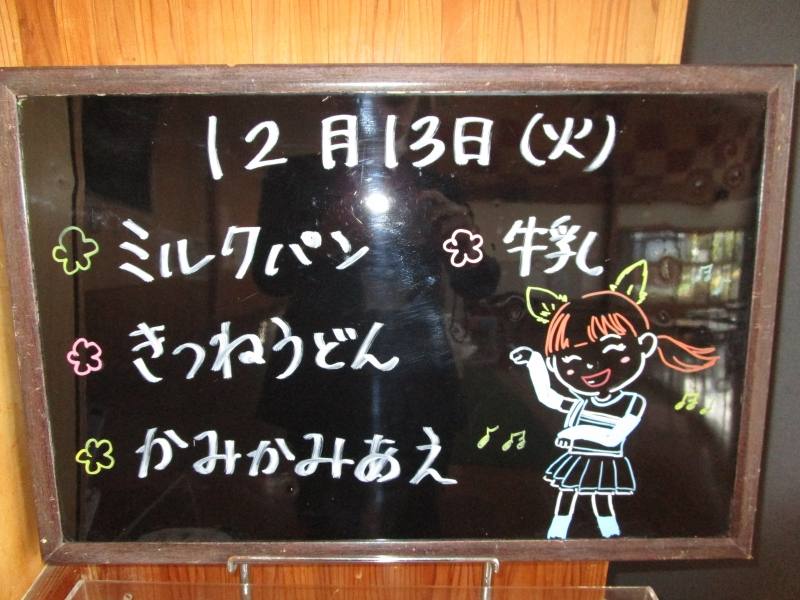 12月13日(火)
ミルクパン 牛乳
きつねうどん
かみかみあえ